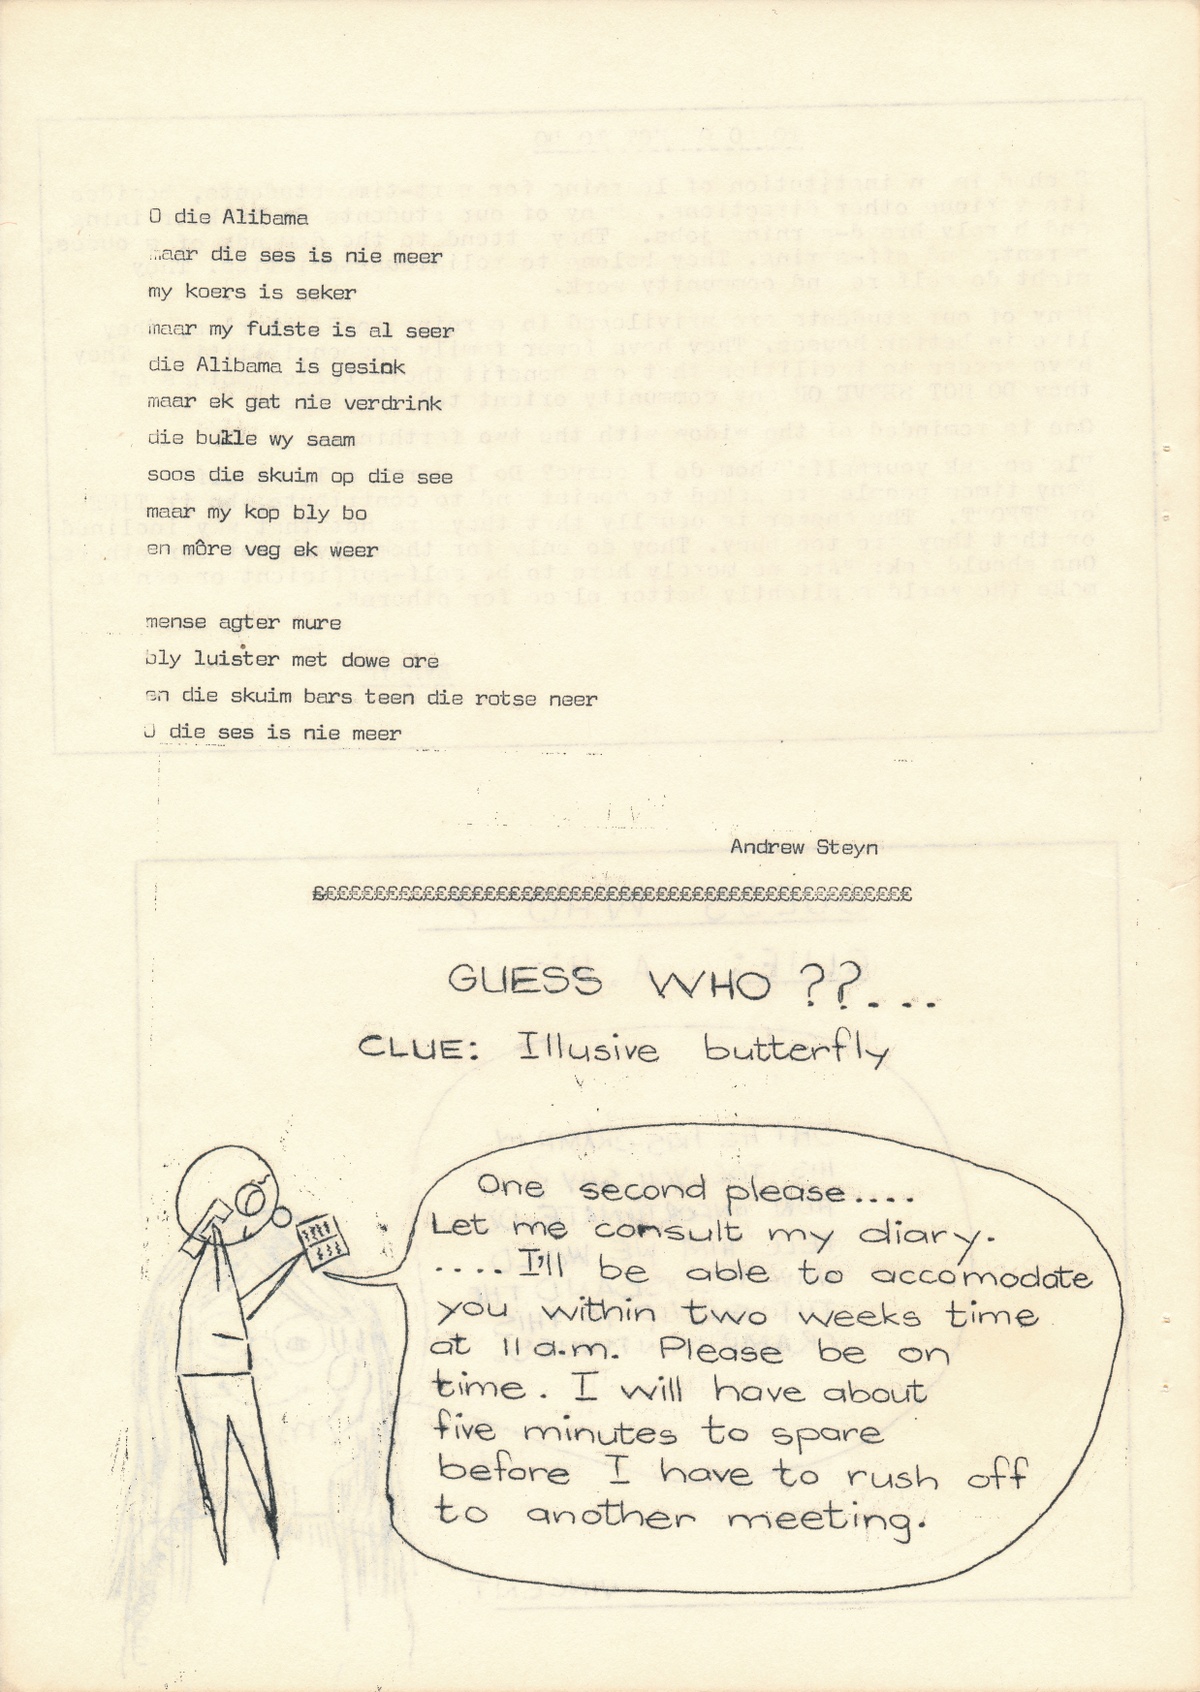 O die Alibama
maar die ses is nie meer
my koers is seker
maar my fuiste is al seer
die Alibama is gesink
maar ek gat nie verdrink
die bulle wy saam
soos die skuim op die see
maar my kop bly bo
en môre veg ek weer
mense agter mure
bly luister met dowe ore
en die skuim bars teen die rotse neer
O die ses is nie meer
Andrew Steyn
££££££££££££££££££££££££££££££££££££££££££££££££££
GUESS WHO ??...
CLUE: Illusive butterfly
One second please....
Let me consult my diary.
.... I'll be able to accomodate
you within two weeks time
at 11 a.m. Please be on
time. I will have about
five minutes to spare
before I have to rush off
to another meeting.